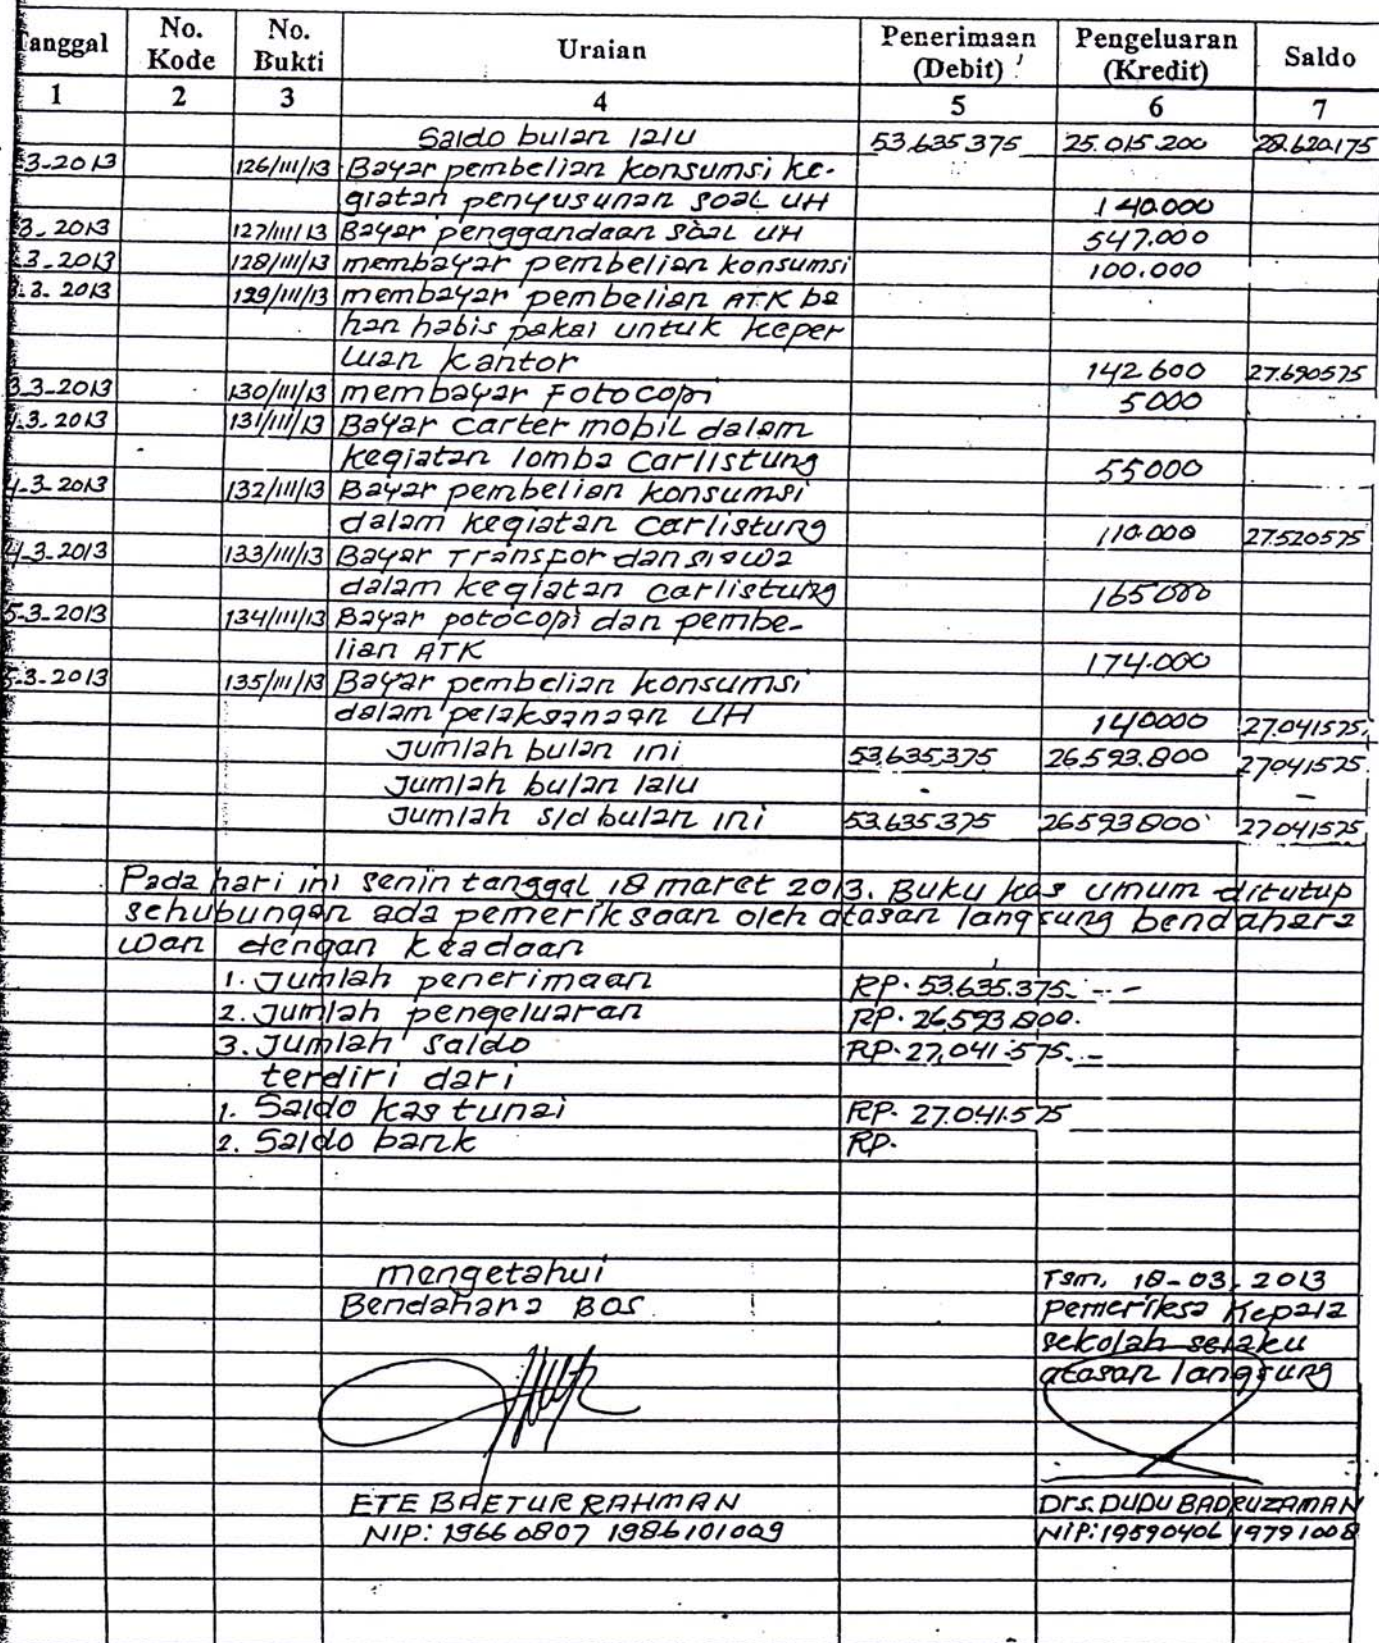 Tanggal No. Kode No. Bukti Uraian Penerimaan (Debit) Pengeluaran (Kredit) Saldo
1 2 3 4 5 6 7
Saldo bulan lalu 53.635.375 25.015.200 28.620.175
3-2013 126/III/13 Bayar pembelian konsumsi ke-
giatan penyusunan soal UH 140.000
3. 2013 127/III/13 Bayar penggandaan soal UH 547.000
.3.2013 128/III/13 membayar pembelian konsumsi 100.000
.3. 2013 129/III/13 membayar pembelian ATK ba
han habis pakai untuk keper
luan kantor 142.600 27.690575
3-2013 130/III/13 membayar Fotocopi 5000
.3. 2013 131/III/13 Bayar carter mobil dalam
kegiatan lomba Carlistung 55000
4-3-2013 132/III/13 Bayar pembelian konsumsi
dalam kegiatan carlistung 110.000 27.520575
4-3-2013 133/III/13 Bayar Transfor dan siswa
dalam kegiatan carlistung 165000
5-3-2013 134/III/13 Bayar potocopi dan pembe-
lian ATK 174.000
5-3-2013 135/III/13 Bayar pembelian konsumsi
dalam pelaksanaan UH 140000 27.041575
Jumlah bulan ini 53.635.375 26.593.800 27041575
Jumlah bulan lalu - -
Jumlah s/d bulan ini 53.635.375 26593800 27041575
Pada hari ini senin tanggal 18 maret 2013. Buku kas umum ditutup
sehubungan ada pemeriksaan oleh atasan langsung bendahara
wan dengan keadaan
1. Jumlah penerimaan RP. 53.635.375.--
2. Jumlah pengeluaran RP. 26.593.800.
3. Jumlah saldo RP. 27.041.575.-
terdiri dari
1. Saldo kas tunai RP. 27.041.575
2. Saldo bank RP.
mengetahui Tsm, 18-03, 2013
Bendahara BOS pemeriksa Kepala
sekolah selaku
atasan langsung
ETE BAETUR RAHMAN Drs. DUDU BADRUZAMAN
NIP: 19660807 1986101009 NIP: 19590406 19791008